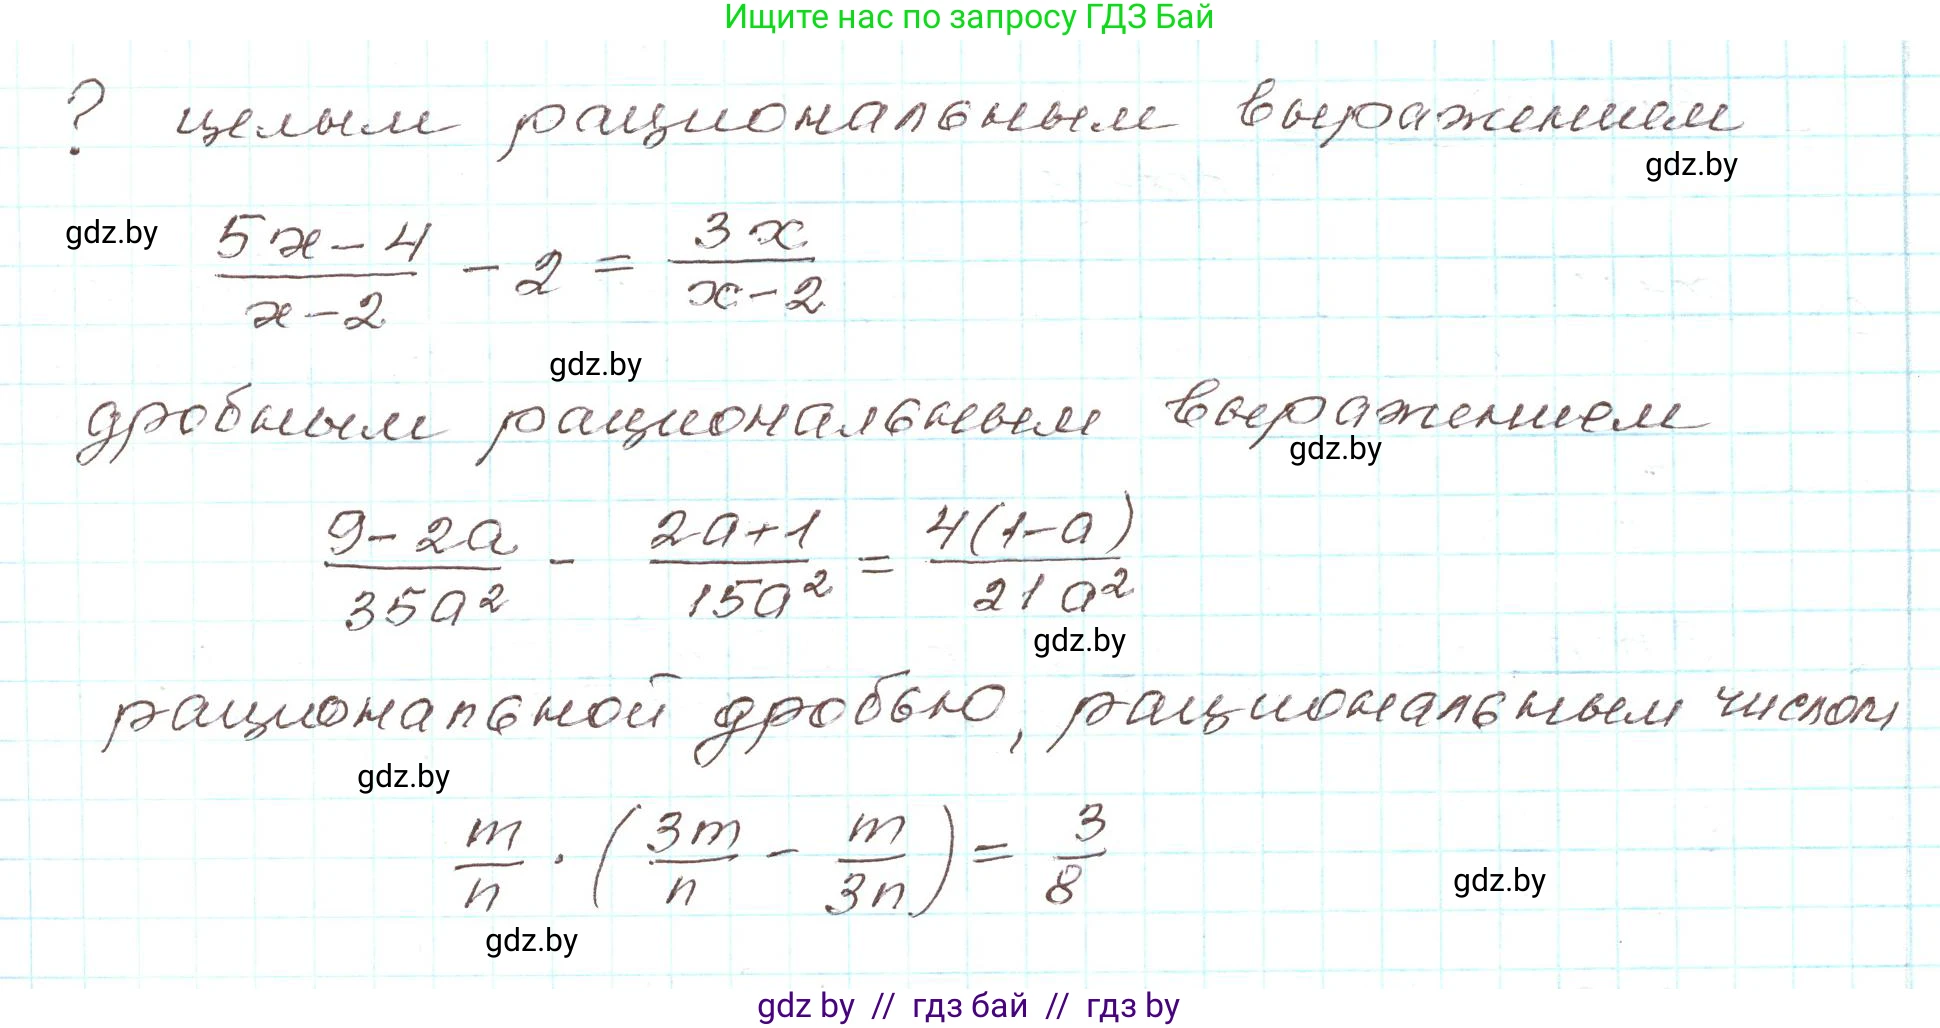 Ищите нас по запросу ГДЗ Бай
? целым рациональным выражением
gdz.by
gdz.by
(5x-4)/(x-2) - 2 = 3x/(x-2)
gdz.by
дробным рациональным выражением
gdz.by
(9-2a)/(35a²) - (2a+1)/(15a²) = 4(1-a)/(21a²)
gdz.by
рациональной дробью, рациональным числом
gdz.by
m/n · (3m/n - m/3n) = 3/8
gdz.by
gdz.by
gdz by // гдз бай // гдз by